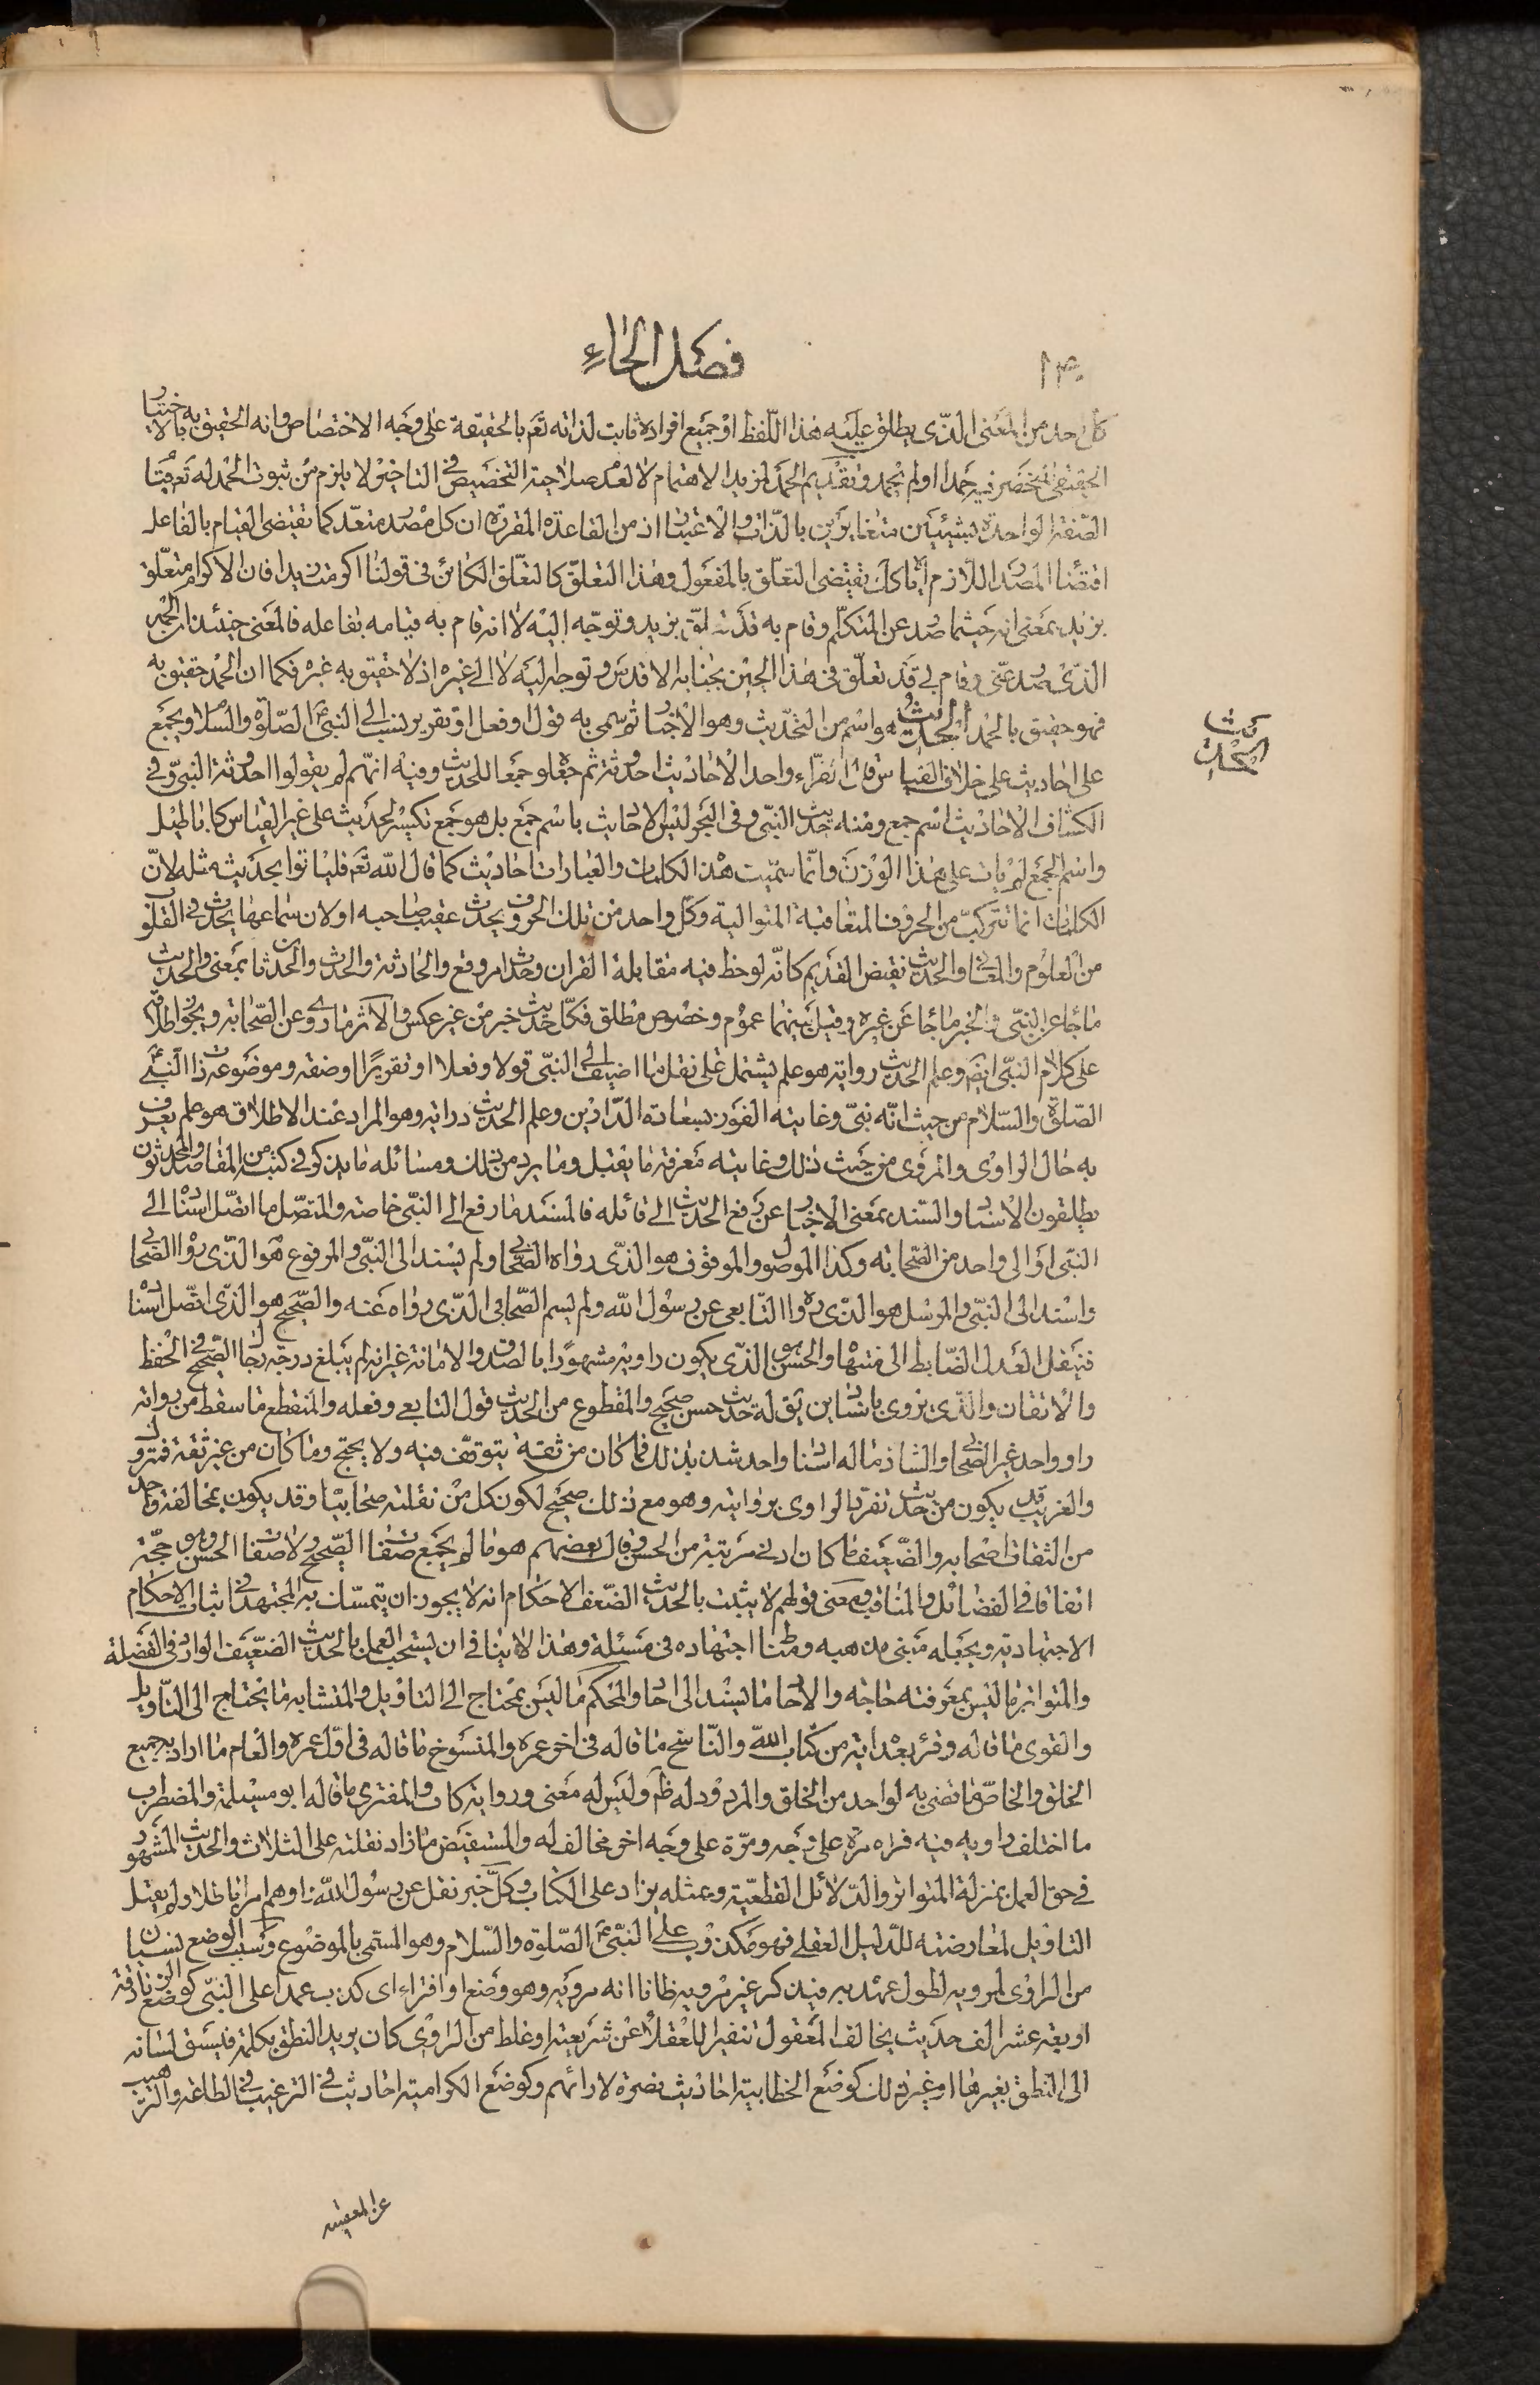 فصل الحاء
١٣٠
كل حد من المعنى الذى يطلق عليه هذا اللفظ او جميع افراده ثابت لذاته تعم بالحقيقة على وجه الاختصاص وانه الحقيق به بالاختيار
الحقيقى المخضر فيه حمدا اولم يحمد وتقديم الحمد لمزيد الاهتمام لا لعدم صلاحية التخصيص فى التاخير ولا يلزم من ثبوت الحمد له تعم
الصفة الواحدة لشيئين متغايرين بالذات والاعتبار اذ من القاعدة المقررة ان كل مصدر متعد كما تقتضى القيام بالفاعل
اقتضا المصدر اللازم اياه كك تقتضى التعلق بالمفعول وهذا التعلق كالتعلق الكائن فى قولنا اكرمت زيدا فان الاكرام متعلق
بزيد بمعنى انه حيثما صدر عن المتكلم وقام به قد تعلق بزيد وتوجه اليه لا انه قام به قيامه بفاعله فالمعنى حينئذ ان الحمد
الذى صدر عنى وقام بى قد تعلق فى هذا الحين بجنابه الاقدس وتوجه اليه لا الى غيره اذ لا حقيق به غيره فكما ان الحمد حقيق به
فهو حقيق بالحمد الحديث هو اسم من التحديث وهو الاخبار ثم سمى به قول او فعل او تقرير نسب الى النبى عم الصلوة والسلام ويجمع
الحديث
على احاديث على خلاف القياس قال الفراء واحد الاحاديث احدوثة ثم جعلو جمعا للحديث وفيه انهم لم يقولوا احدوثة النبى وفى
الكشاف الاحاديث اسم جمع ومنه حديث النبى وفى البحر ليس الاحاديث باسم جمع بل هو جمع تكسير لحديث على غير القياس كاباطيل
واسم الجمع لم يات على هذا الوزن وانما سميت هذا الكلمات والعبارات احاديث كما قال الله تعم فلياتوا بحديث مثله لان
الكلمات انما تتركب من الحروف المتعاقبة المتوالية وكل واحد من تلك الحروف يحدث عقيب صاحبه او لان سماعها يحدث فى القلوب
من العلوم والمعانى والحديث نقيض القديم كانه لوحظ فيه مقابلة القران وحدث امر وقع والحادثة والحدث والحدثان بمعنى والحديث
ما جاء عن النبى والخبر ما جاء عن غيره وقيل بينهما عموم وخصوص مطلق فكل حديث خبر من غير عكس والاثر ما روى عن الصحابة ويجوز اطلاقه
على كلام النبى ايضم وعلم الحديث رواية هو علم يشتمل على نقل ما اضيف الى النبى قولا وفعلا او تقريرا او صفة وموضوعه ذات النبى
الصلوة والسلام من حيث انه نبى وغايته الفوز بسعادة الدارين وعلم الحديث دراية وهو المراد عند الاطلاق هو علم يعرف
به حال الراوى والمروى من حيث ذلك وغايته معرفة ما يقبل وما يرد من ذلك ومسائله ما يذكر فى كتبه من المقاصد والمحدثون
يطلقون الاسناد والسند بمعنى الاخبار عن رفع الحديث الى قائله فالمسند ما رفع الى النبى خاصة والمتصل ما اتصل اسناده الى
النبى او الى واحد من الصحابة وكذا الموصول والموقوف هو الذى رواه الصحابى ولم يسند الى النبى والمرفوع هو الذى رواه الصحابى
واسند الى النبى والمرسل هو الذى رواه التابعى عن رسول الله ولم يسم الصحابى الذى رواه عنه والصحيح هو الذى اتصل اسناده
فنقل العدل الضابط الى منتهاه والحسن هو الذى يكون راويه مشهورا بالصدق والامانة غير انه لم يبلغ درجة رجال الصحيح فى الحفظ
والاتقان والذى يروى باسنادين يق له حديث حسن صحيح والمقطوع من الحديث قول التابعى وفعله والمنقطع ما سقط من رواته
راو واحد غير الصحابى والشاذ ما له اسناد واحد شذ بذلك فما كان من ثقة يتوقف فيه ولا يحتج وما كان من غير ثقة فمتروك
والغريب قد يكون من حديث تفرد الراوى بروايته وهو مع ذلك صحيح لكون كل من نقلته صحابيا وقد يكون بمخالفة واحد
من الثقات اصحابه والضعيف ما كان ادنى مرتبة من الحسن وقال بعضهم هو ما لم يجمع صفات الصحيح ولا صفات الحسن وهو حجة
اتفاقا فى الفضائل والمناقب ومعنى قولهم لا يثبت بالحديث الضعف الاحكام انه لا يجوز ان يتمسك به المجتهد فى اثبات الاحكام
الاجتهادية ويجعله مبنى مذهبه ومظنا اجتهاده فى مسئلة وهذا لا ينافى ان يستحب العمل بالحديث الضعيف الوارد فى الفضيلة
والمتواتر ما ليس بمعرفته حاجه والاحاد ما يسند الى احاد والمحكم ما ليس بمحتاج الى التاويل والمتشابه ما يحتاج الى التاويل
والقوى ما قاله وقرء بعد اية من كتاب الله والناسخ ما قاله فى اخر عمره والمنسوخ ما قاله فى اول عمره والعام ما اراد به جميع
الخلق والخاص ما قضى به لواحد من الخلق والمردود له ظم وليس له معنى ورواية كاذب والمفترى ما قاله ابو مسيلمة والمضطرب
ما اختلف راويه فيه فراه مرة على وجه ومرة على وجه اخر مخالف له والمستفيض ما زاد نقلته على الثلاث والحديث المشهور
فى حق العمل بمنزلة المتواتر والدلائل القطعية وبمثله يزاد على الكتاب وكل خبر نقل عن رسول الله ص اوهم امرا باطلا ولم يقبل
التاويل لمعارضته للدليل العقلى فهو مكذوب على النبى عم الصلوة والسلام وهو المسمى بالموضوع وسبب الوضع نسيان
من الراوى لمرويه لطول عهد به فيذكر غير مرويه ظانا انه مرويه وهو وضع او افتراء اى كذب عمدا على النبى كوضع الزنادقة
اربعة عشر الف حديث يخالف المعقول تنفيرا للعقلاء عن شريعته او غلط من الراوى كان يريد النطق بكلمة فيسبق لسانه
الى النطق بغيرها او غير ذلك كوضع الخطابية احاديث نصرة لارائهم وكوضع الكرامية احاديث فى الترغيب فى الطاعة والترهيب
عن المعصية